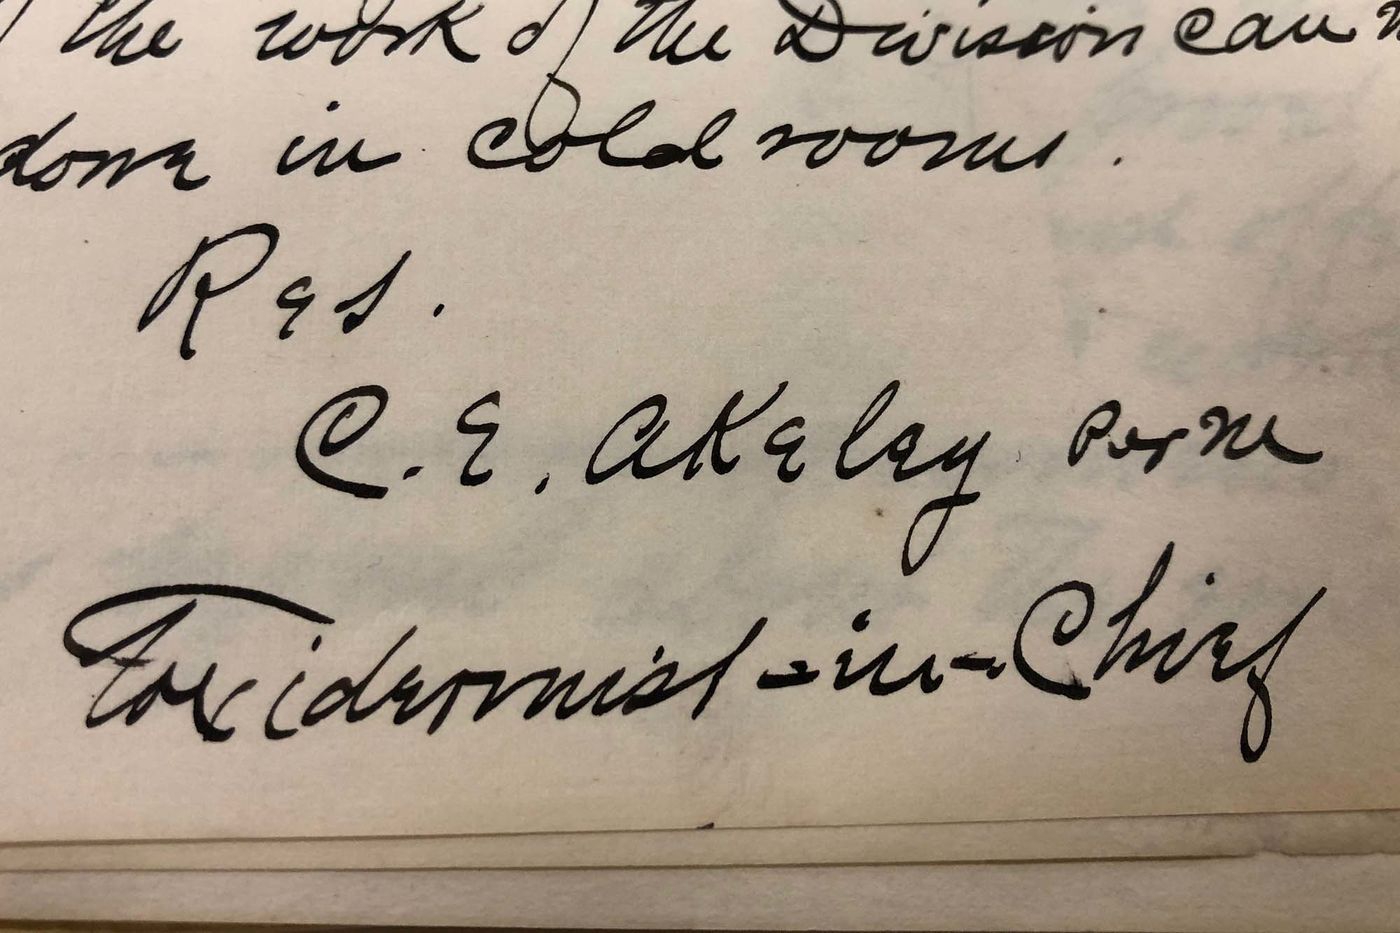 the work of the Division can
done in cold rooms.
Res.
C. E. Akeley per
Taxidermist-in-Chief